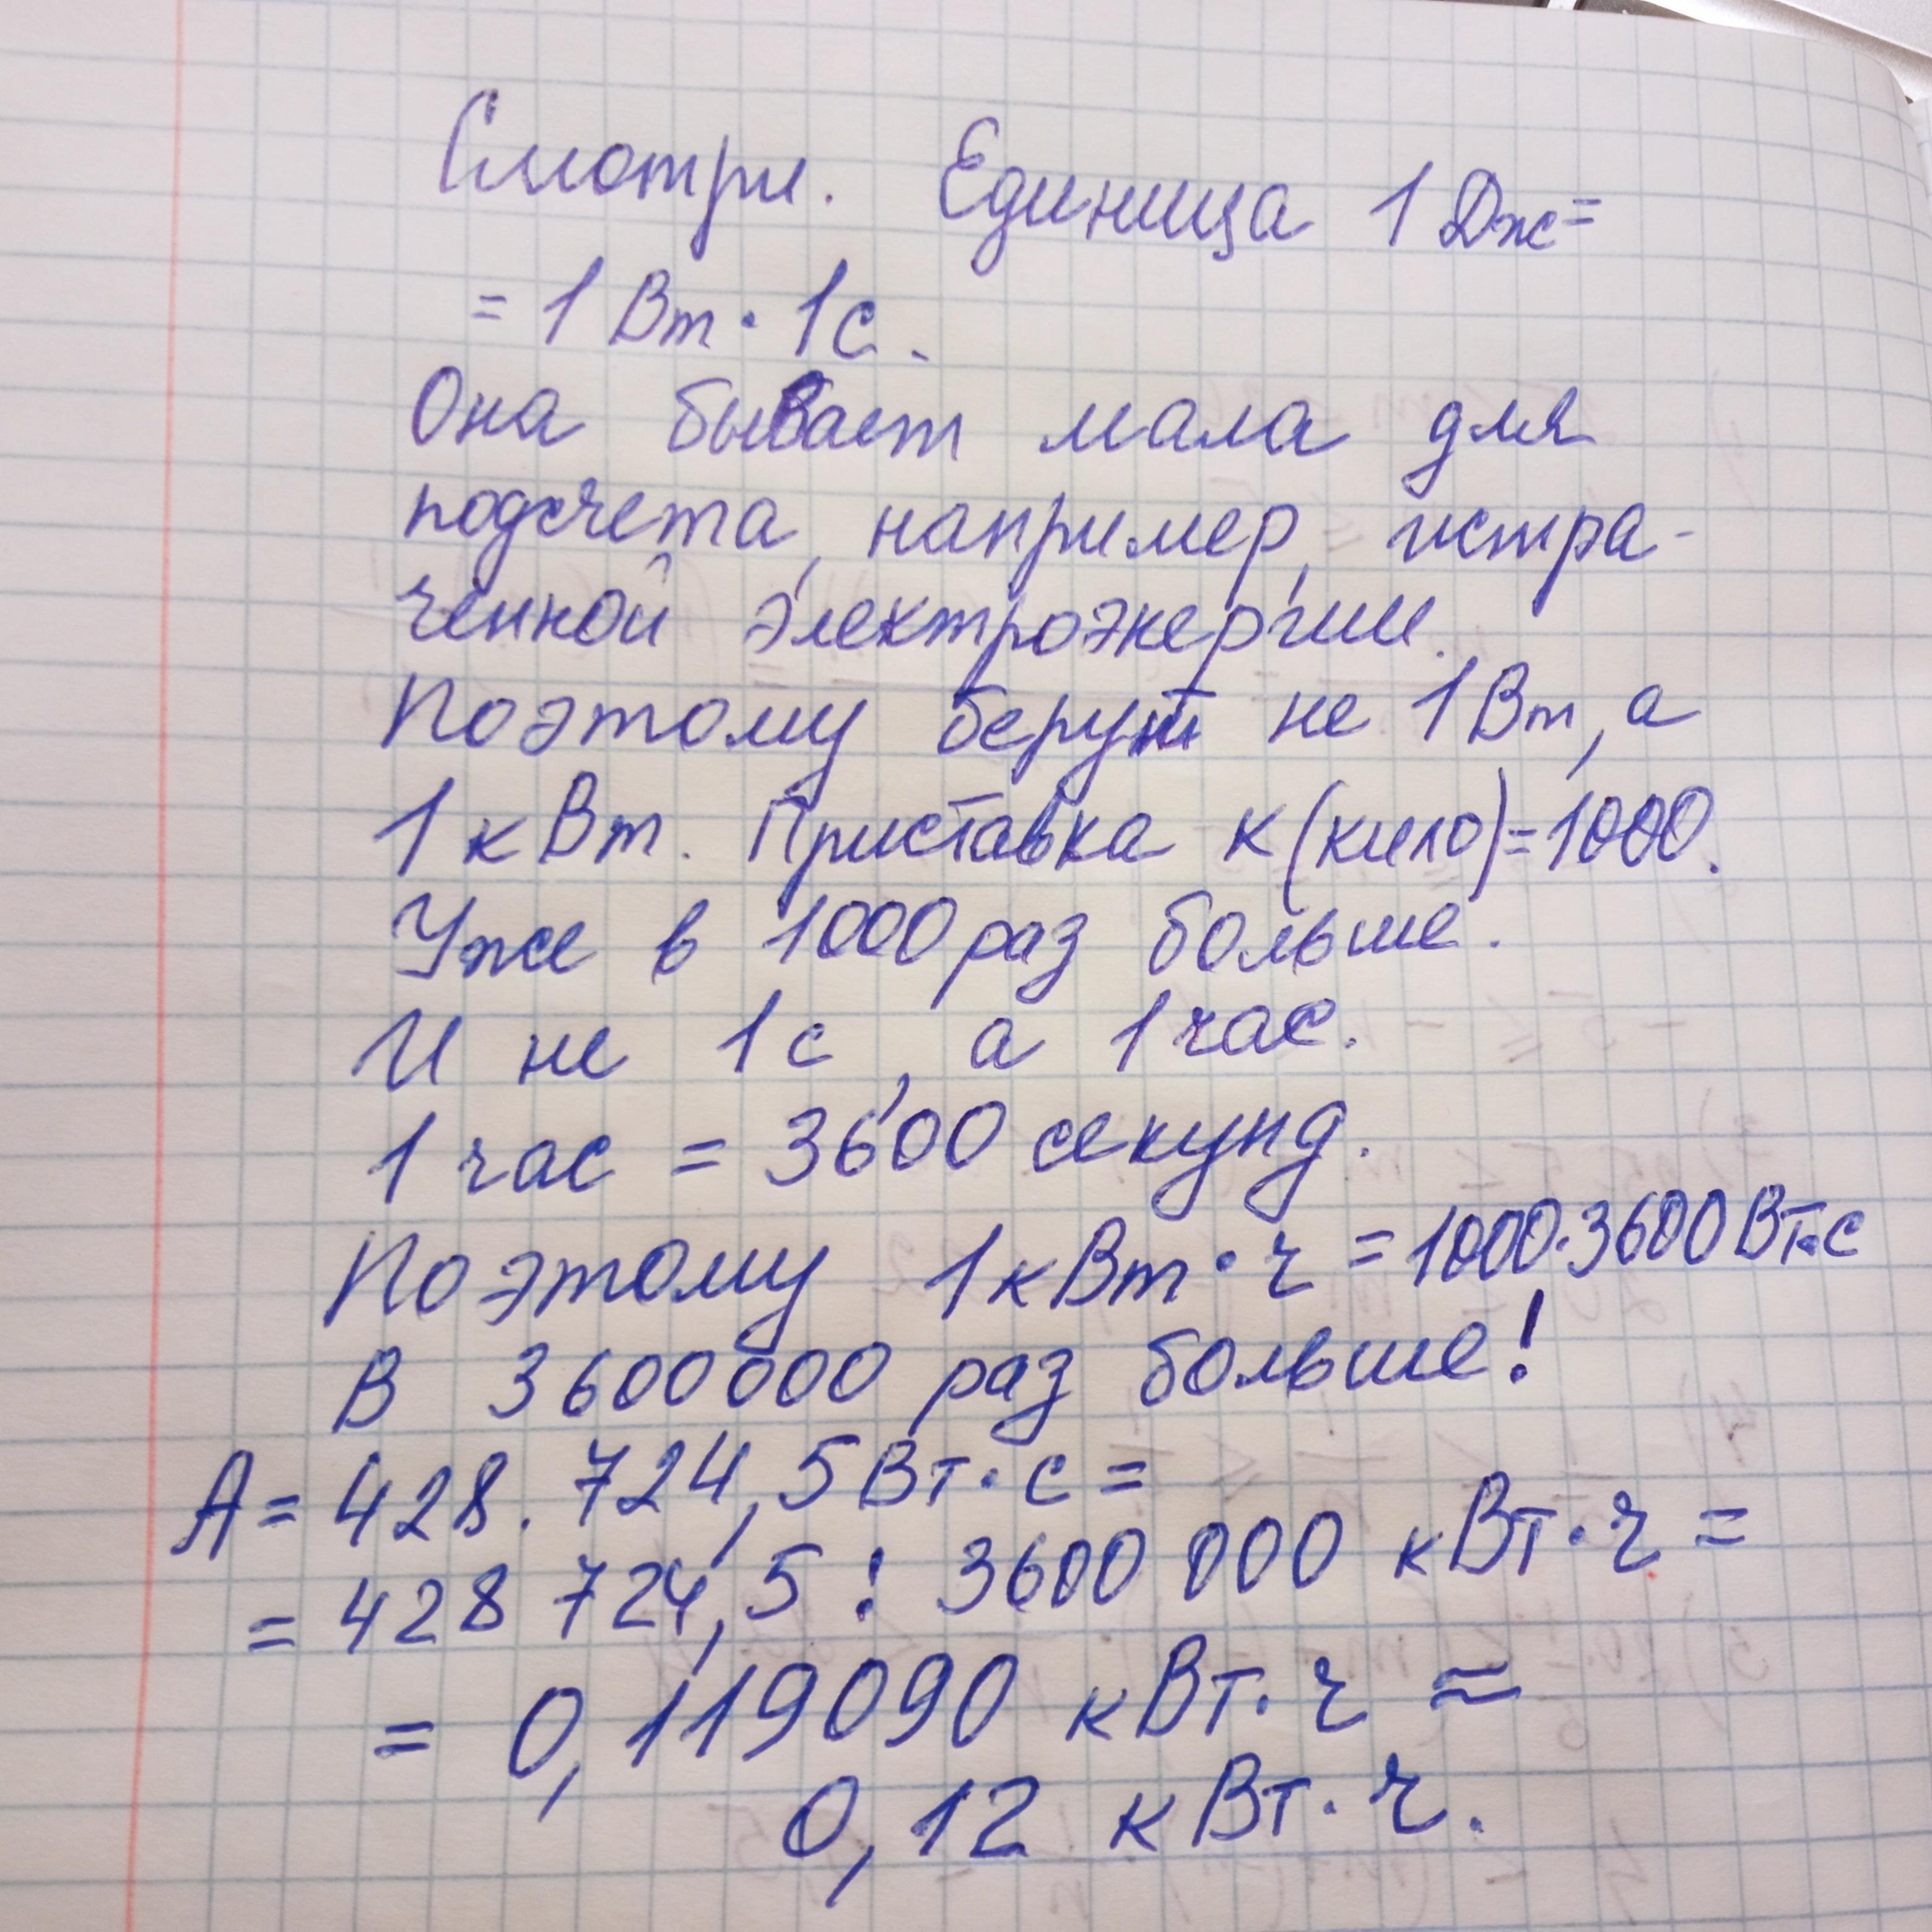 Смотри. Единица 1 Дж=
= 1 Вт · 1с.
Она бывает мала для
подсчета, например, истра-
ченной электроэнергии.
Поэтому берут не 1 Вт, а
1 кВт. Приставка к (кило)=1000.
Уже в 1000 раз больше.
И не 1 с, а 1 час.
1 час = 3600 секунд.
Поэтому 1 кВт · ч = 1000·3600 Вт·с
В 3600000 раз больше!
А = 428.724,5 Вт·с =
= 428 724,5 : 3600 000 кВт·ч =
= 0,119090 кВт·ч ≈
0,12 кВт·ч.